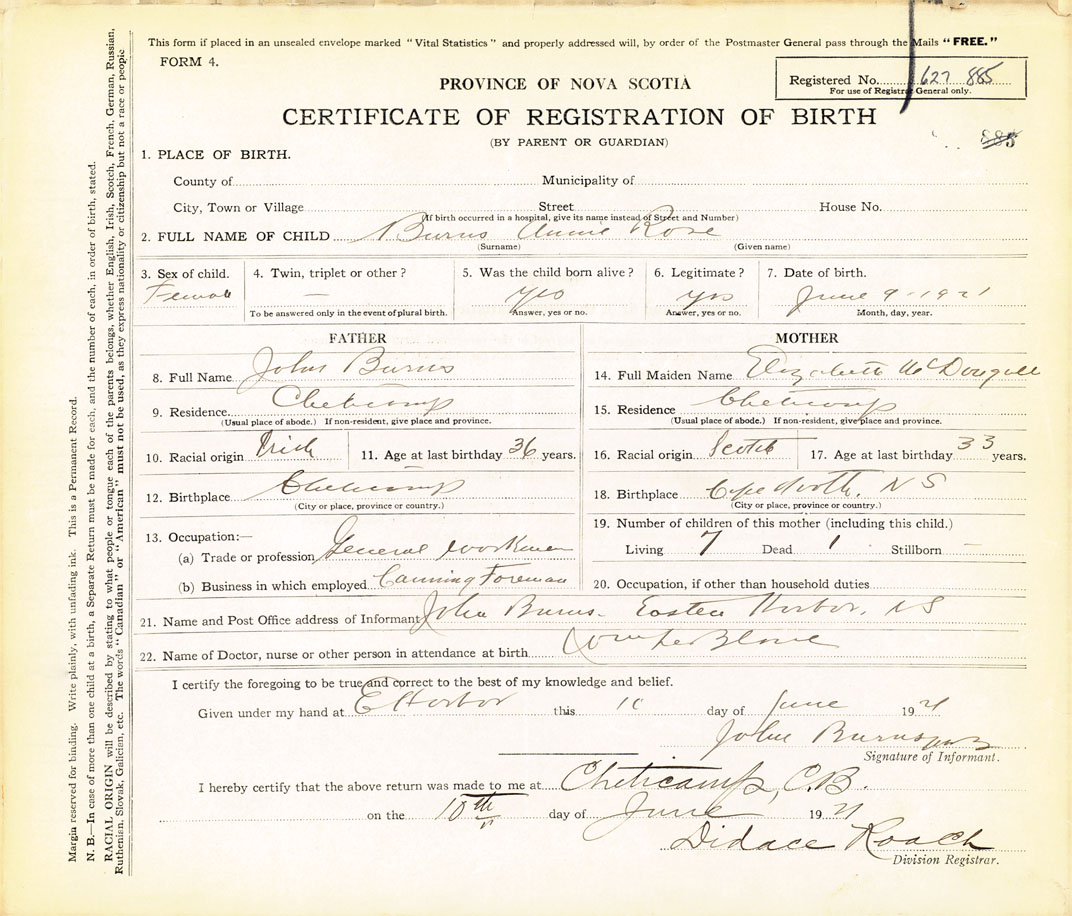 This form if placed in an unsealed envelope marked "Vital Statistics" and properly addressed will, by order of the Postmaster General pass through the Mails "FREE."
FORM 4.
PROVINCE OF NOVA SCOTIA
Registered No. 627 885
For use of Registrar General only.
CERTIFICATE OF REGISTRATION OF BIRTH
(BY PARENT OR GUARDIAN)
885
1. PLACE OF BIRTH.
County of Municipality of
City, Town or Village Street House No.
(If birth occurred in a hospital, give its name instead of Street and Number)
2. FULL NAME OF CHILD Burns Annie Rose
(Surname) (Given name)
3. Sex of child. 4. Twin, triplet or other? 5. Was the child born alive? 6. Legitimate? 7. Date of birth.
Female — yes yes June 9-1921
To be answered only in the event of plural birth. Answer, yes or no. Answer, yes or no. Month, day, year.
FATHER
8. Full Name John Burns
9. Residence. Cheticamp
(Usual place of abode.) If non-resident, give place and province.
10. Racial origin Irish 11. Age at last birthday 36 years.
12. Birthplace Cheticamp
(City or place, province or country.)
13. Occupation:—
(a) Trade or profession General workman
(b) Business in which employed Canning Foreman
MOTHER
14. Full Maiden Name Elizabeth McDougall
15. Residence Cheticamp
(Usual place of abode.) If non-resident, give place and province.
16. Racial origin Scotch 17. Age at last birthday 33 years.
18. Birthplace Cape North, N S
(City or place, province or country.)
19. Number of children of this mother (including this child.)
Living 7 Dead 1 Stillborn —
20. Occupation, if other than household duties
21. Name and Post Office address of Informant John Burns. Eastern Harbor, N S
22. Name of Doctor, nurse or other person in attendance at birth
I certify the foregoing to be true and correct to the best of my knowledge and belief.
Given under my hand at E Harbor this 10 day of June 1921
John Burns
Signature of Informant.
I hereby certify that the above return was made to me at Cheticamp, C.B.
on the 10th day of June 1921
Didace Roach
Division Registrar.
Margin reserved for binding. Write plainly, with unfading ink. This is a Permanent Record.
N. B.—In case of more than one child at a birth, a Separate Return must be made for each, and the number of each, in order of birth, stated.
RACIAL ORIGIN will be described by stating to what people or tongue each of the parents belongs, whether English, Irish, Scotch, French, German, Russian,
Ruthenian, Slovak, Galician, etc. The words "Canadian" or "American" must not be used, as they express nationality or citizenship but not a race or people